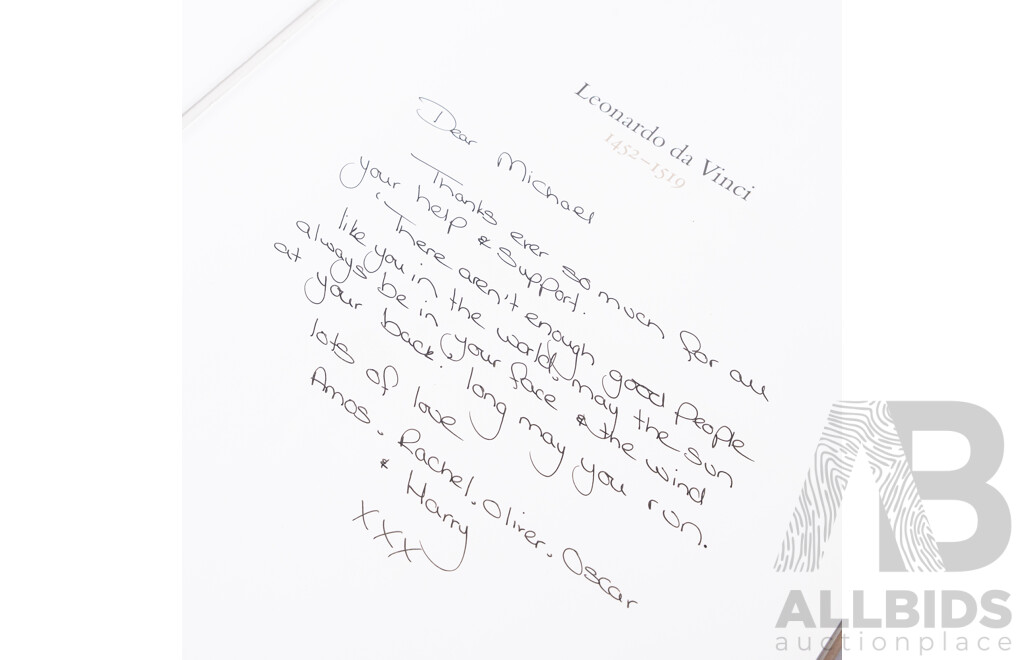 Leonardo da Vinci
1452–1519
Dear Michael
Thanks ever so much for all
your help & support.
"There aren't enough good people
like you in the world, may the sun
always be in your face & the wind
at your back. long may you run.
lots of love
Amos. Rachel. Oliver. Oscar
& Harry
xxx
AB
ALLBIDS
auctionplace